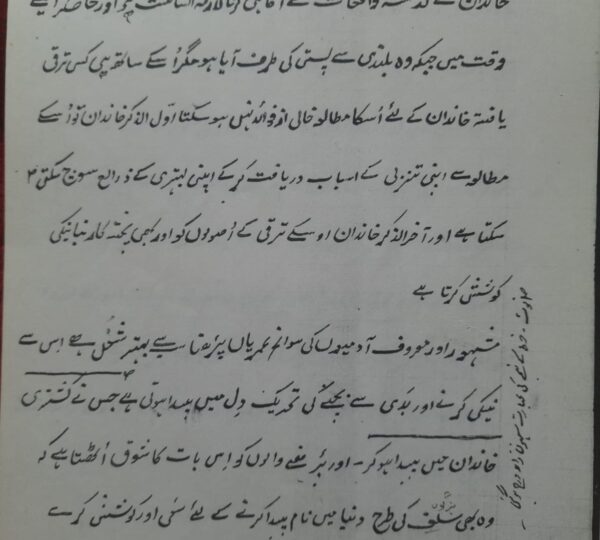 خاندان کے گذشتہ واقعات سے آگاہی
وقت میں جبکہ وہ بلندی سے پستی کی طرف آیا ہو مگر اُسکے ساتھ ہی کسی ترقی
یافتہ خاندان کے لئے اُسکا مطالعہ خالی از فوائد نہیں ہو سکتا اول الذکر خاندان تو اُسکے
مطالعہ سے اپنی تنزلی کے اسباب دریافت کر کے اپنی بہتری کے ذرائع سوچ سکتی
سکتا ہے اور آخر الذکر خاندان اوسکے ترقی کے اُصولوں کو اور بھی پختہ کار بنانیکی
کوشش کرتا ہے
مشہور اور معروف آدمیوں کی سوانح عمریاں پڑھنا سب سے بہتر شغل ہے اس سے
نیکی کرنے اور بدی سے بچنے کی تحریک دل میں پیدا ہوتی ہے جس نے
خاندان میں پیدا ہو کر - اور پڑھنے والوں کو اس بات کا شوق اُٹھتا ہے کہ
بزرگوں
وہ بھی سلف کی طرح دنیا میں نام پیدا کرنے کے لئے سعی اور کوشش کرے
نوٹ - کی عبارت